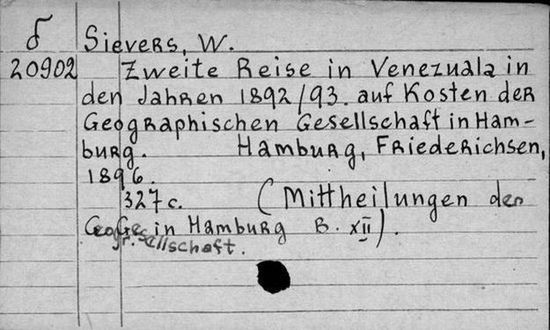 δ Sievers, W.
20902 Zweite Reise in Venezuala in
den Jahren 1892/93. auf Kosten der
Geographischen Gesellschaft in Ham-
burg. Hamburg, Friederichsen,
1896.
327 c. (Mittheilungen der
Geogr. Gesellschaft. in Hamburg B. XII).